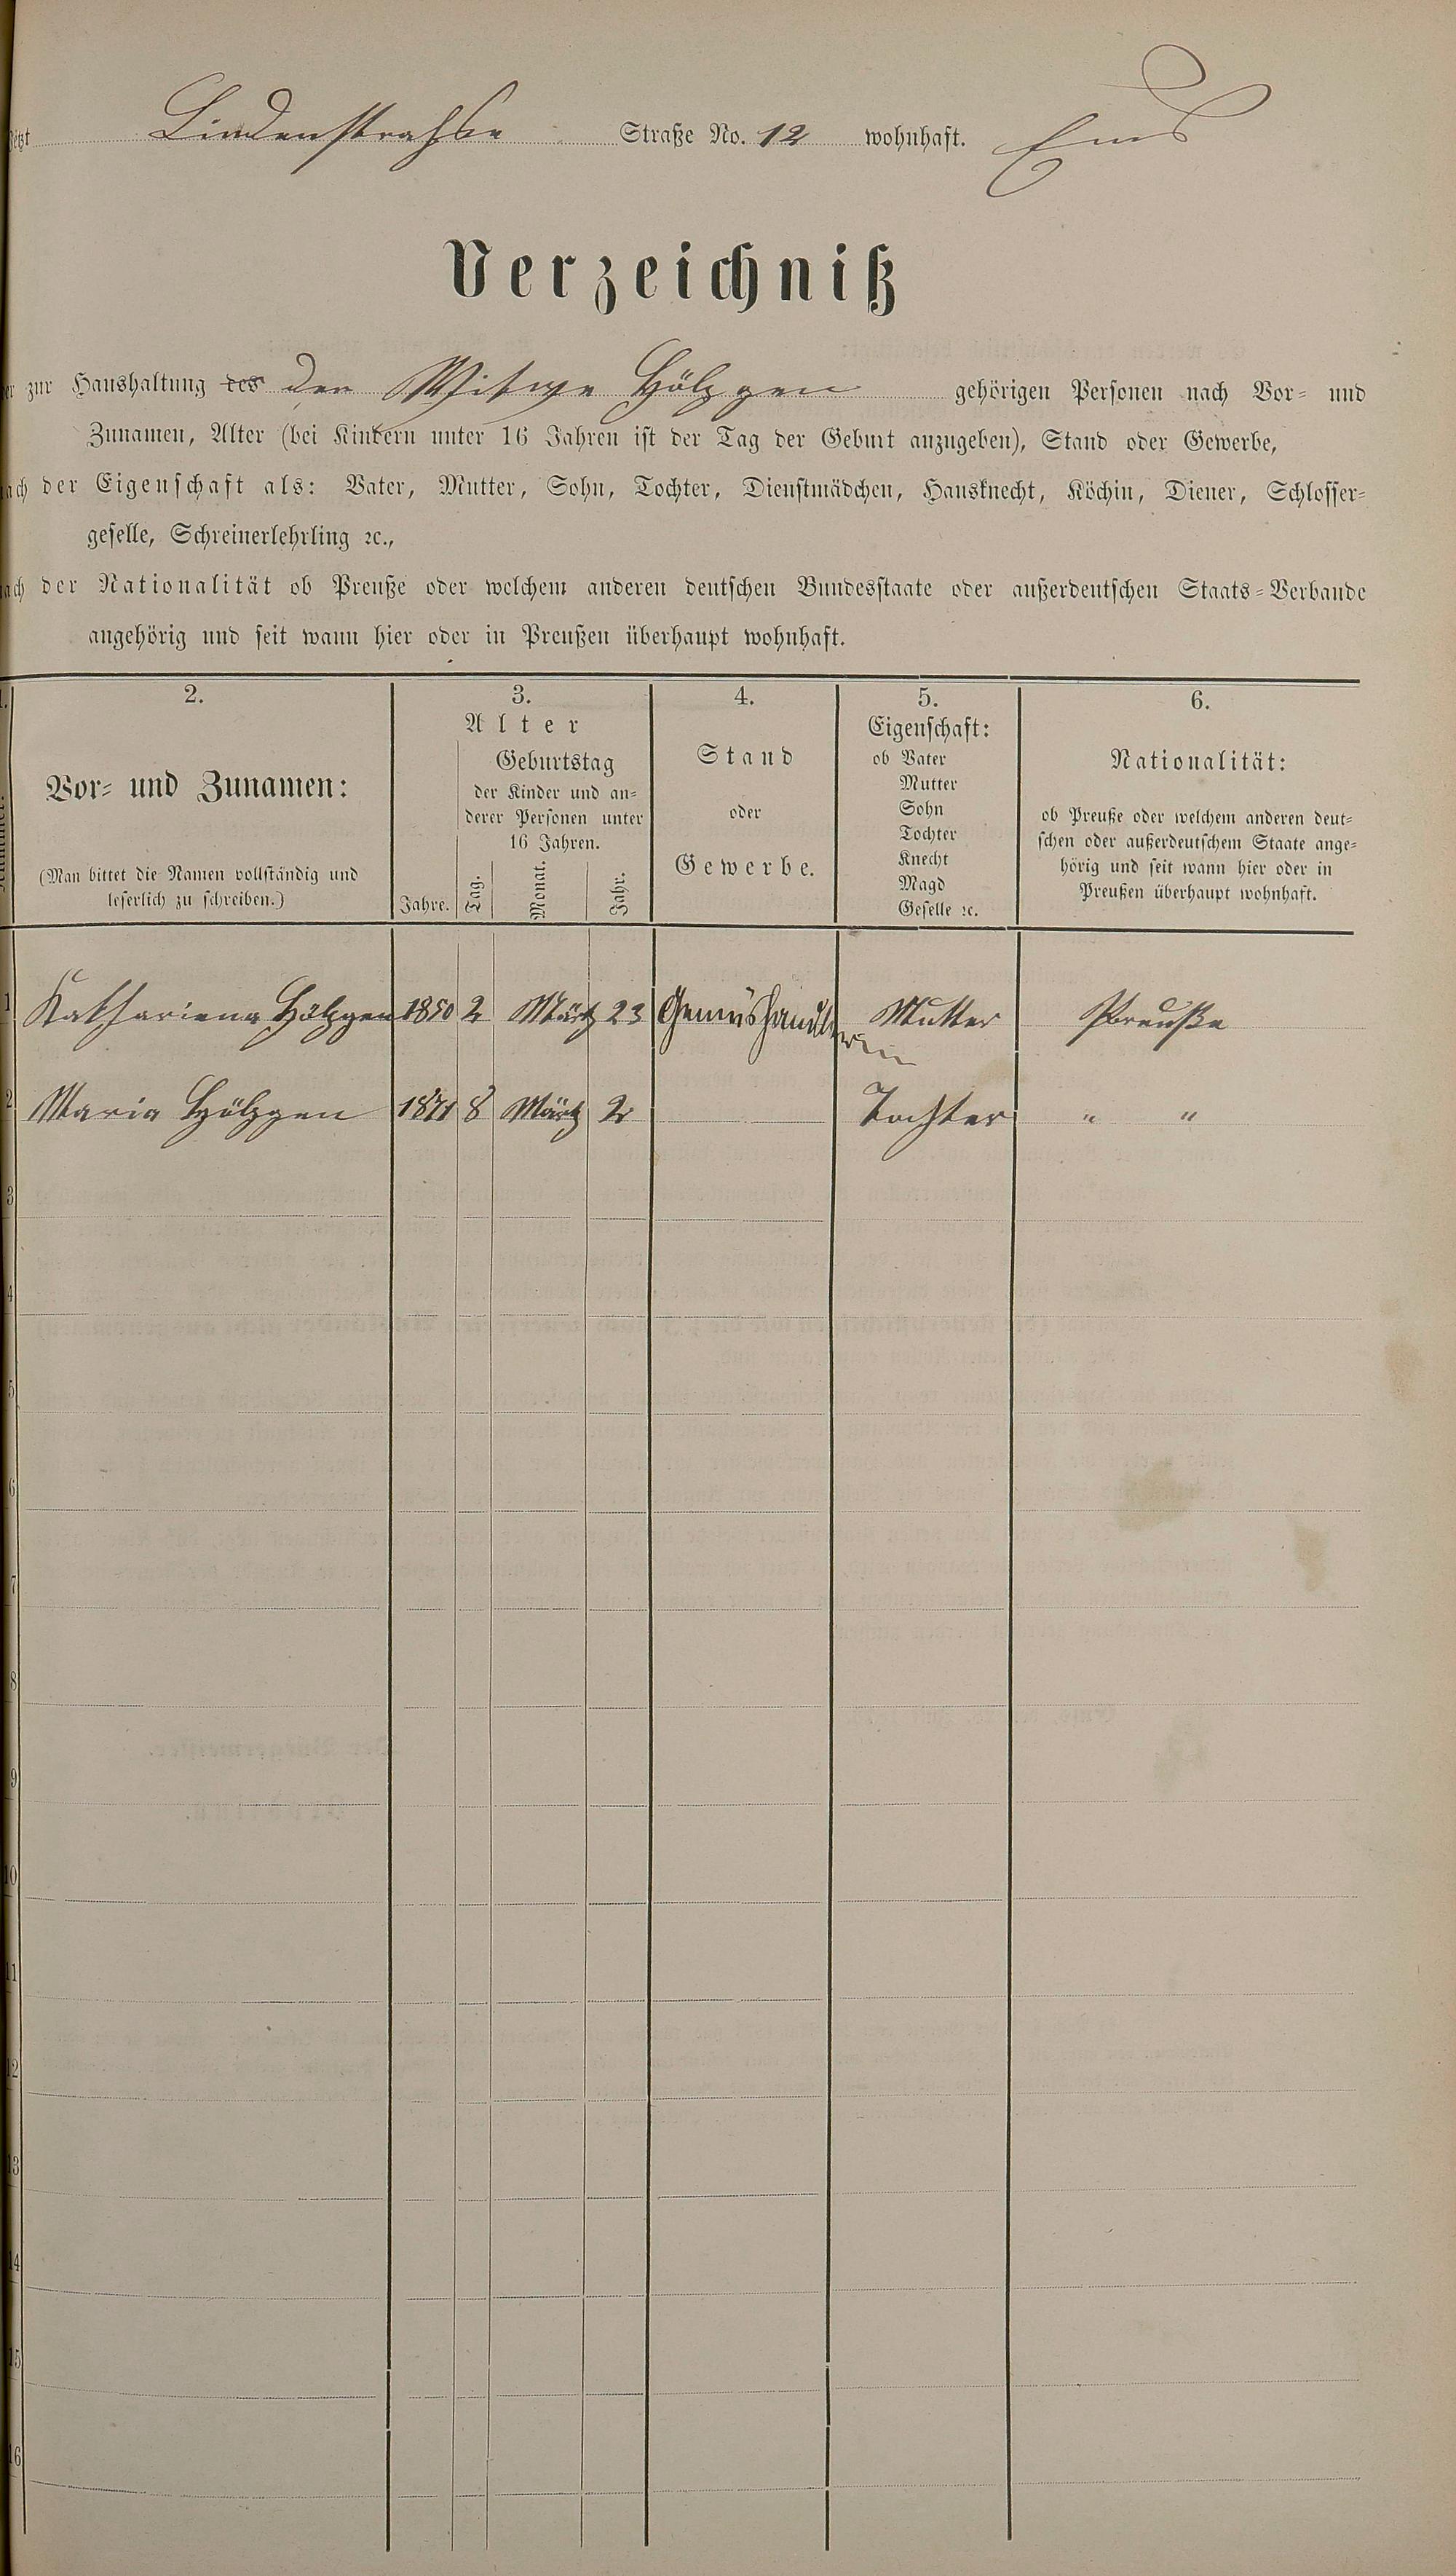 jetzt Lindenstrahse Straße No. 12 wohnhaft. Ems
Verzeichniß
der zur Haushaltung des den Witwe Hölzgen gehörigen Personen nach Vor- und
Zunamen, Alter (bei Kindern unter 16 Jahren ist der Tag der Geburt anzugeben), Stand oder Gewerbe,
nach der Eigenschaft als: Vater, Mutter, Sohn, Tochter, Dienstmädchen, Hausknecht, Köchin, Diener, Schlosser-
geselle, Schreinerlehrling ꝛc.,
nach der Nationalität ob Preuße oder welchem anderen deutschen Bundesstaate oder außerdeutschen Staats-Verbande
angehörig und seit wann hier oder in Preußen überhaupt wohnhaft.
1.
2.
Vor- und Zunamen:
(Man bittet die Namen vollständig und
leserlich zu schreiben.)
3.
Alter
Jahre.
Geburtstag
der Kinder und an-
derer Personen unter
16 Jahren.
Tag.
Monat.
Jahr.
4.
Stand
oder
Gewerbe.
5.
Eigenschaft:
ob Vater
Mutter
Sohn
Tochter
Knecht
Magd
Geselle ꝛc.
6.
Nationalität:
ob Preuße oder welchem anderen deut-
schen oder außerdeutschem Staate ange-
hörig und seit wann hier oder in
Preußen überhaupt wohnhaft.
1 Kathariena Hölzgen 1850 2 Märtz 23 Gemüshandlerin Mutter Preuße
2 Maria Hölzgen 1871 8 Märtz 2 Tochter " "
3
4
5
6
7
8
9
10
11
12
13
14
15
16